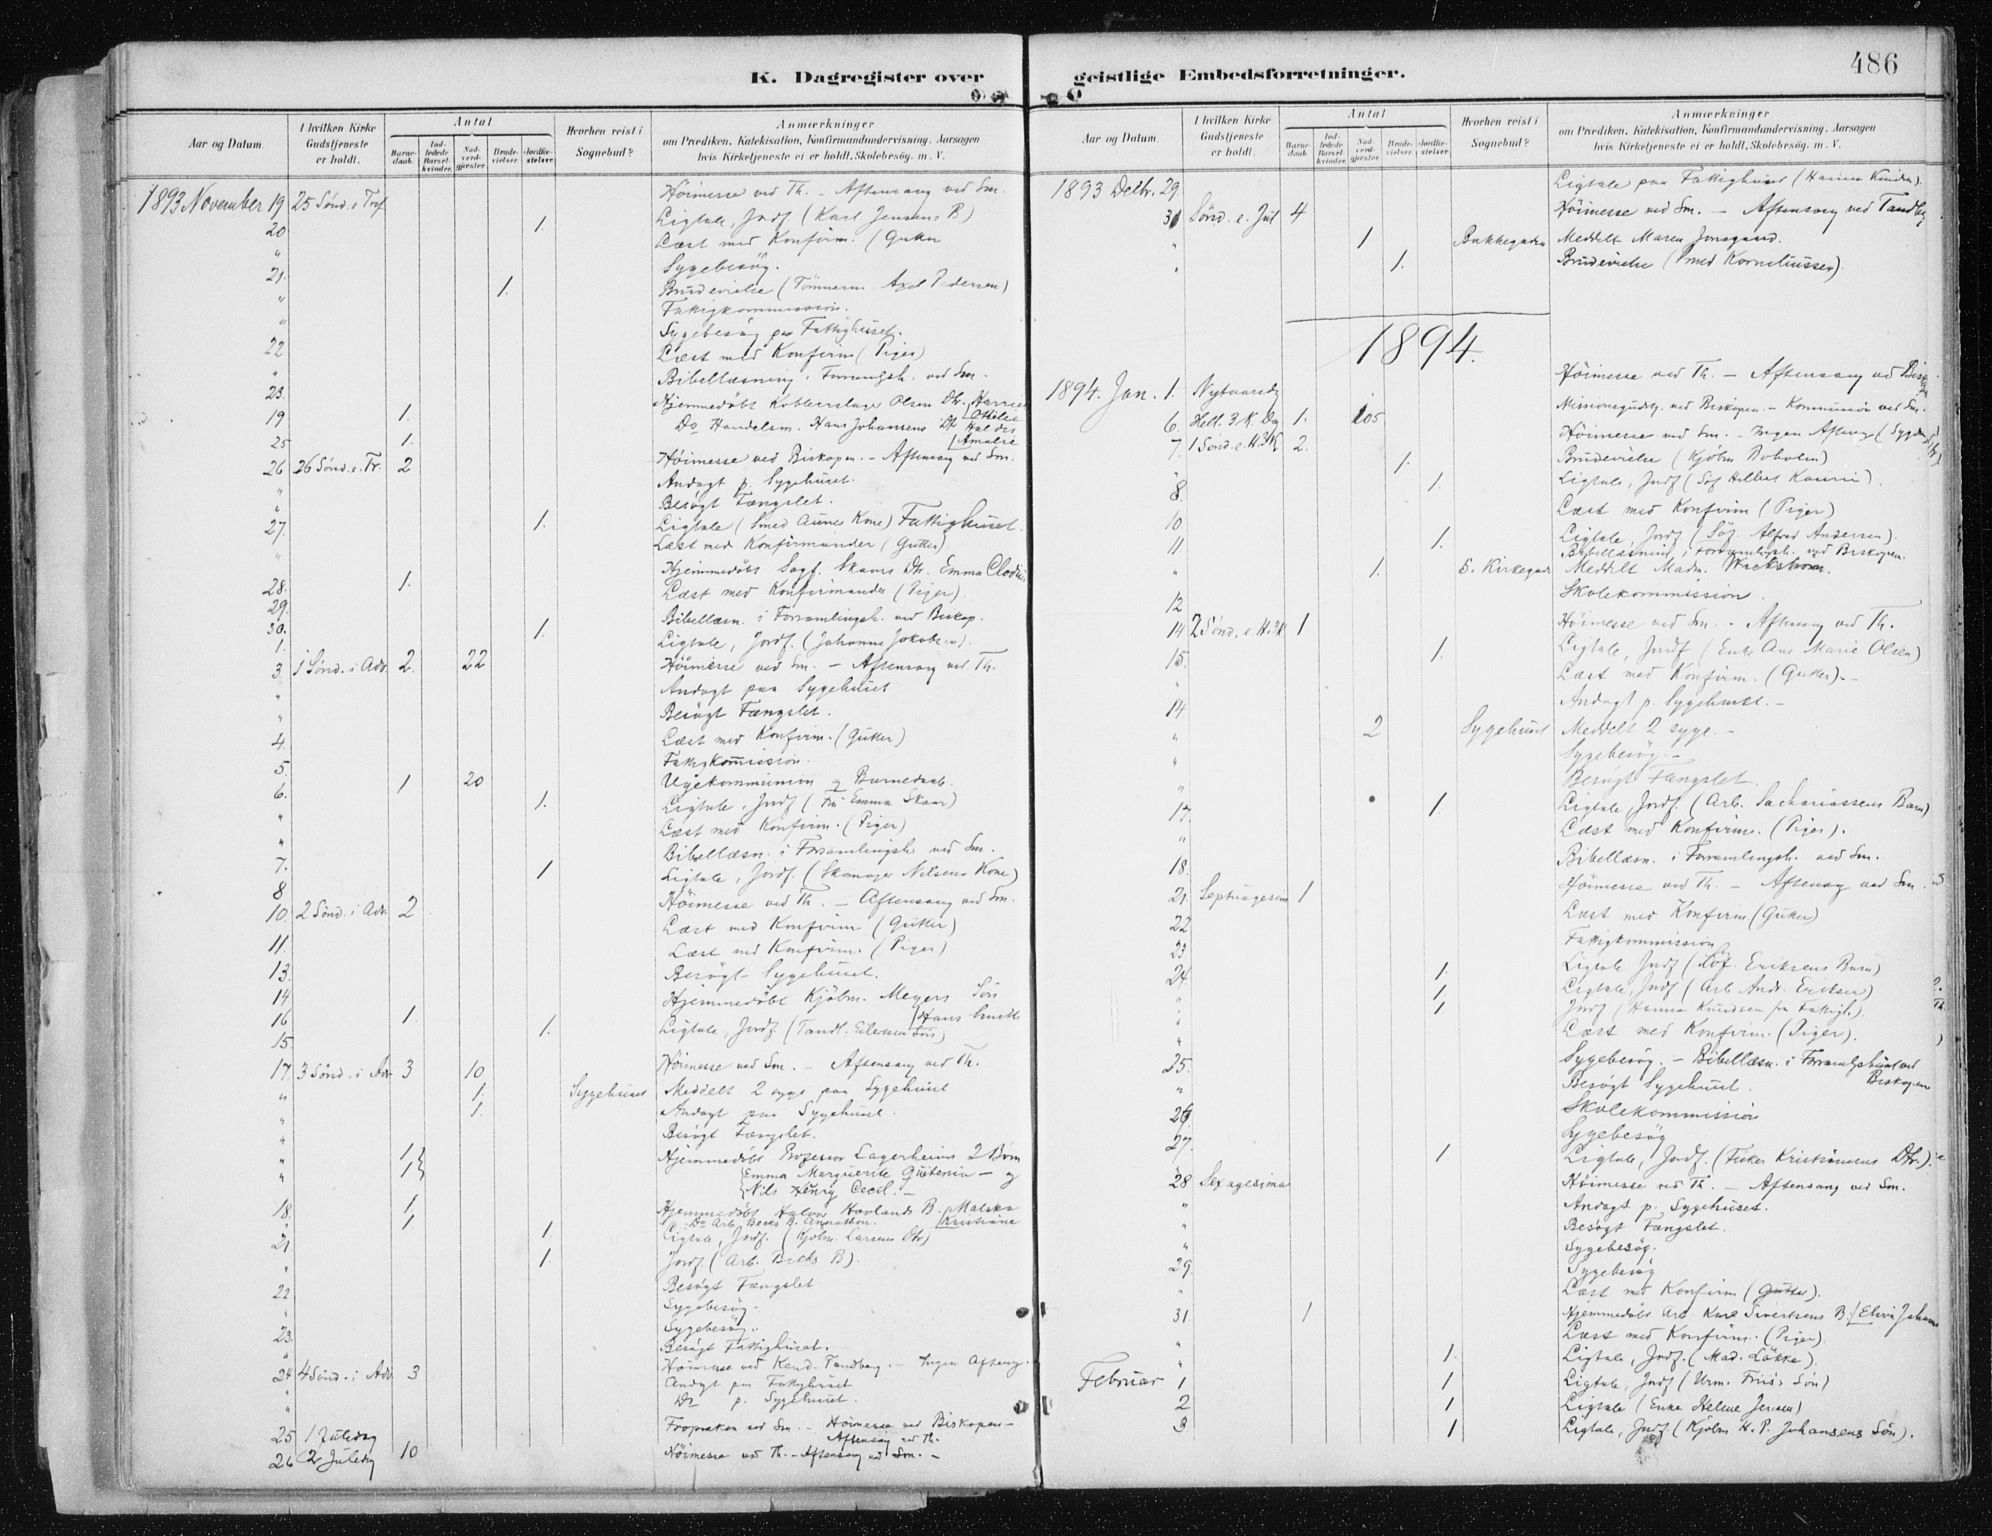 486
K. Dagregister over geistlige Embedsforretninger.
Aar og Datum. I hvilken Kirke Gudstjeneste er holdt. Antal Barnedaab. Indledede Barselkvinder. Nadverdgjester. Brudevielser. Jordfæstelser. Hvorhen reist i Sognebud? Anmærkninger om Prædiken, Katekisation, Konfirmandundervisning, Aarsagen hvis Kirketjeneste ei er holdt, Skolebesøg. m. V.
1893 November 19 25 Sønd. e. Tref. Höimesse ved Th. - Aftensang ved Sm.
20 1. Ligtale, Jordf (Karl Jensens B)
" Læst med Konfirm. (Gutter
21. Sygebesög.
" 1. Brudevielse (Tömmerm. Axel Pedersen)
" Fattigkommission.
22 Sygebesög paa Fattighuset.
" Læst med Konfirm (Piger)
23. Bibellæsning i Forsamlgsh. ved Sm.
19 1. Hjemmedöbt Kobberslager Olsen Dtr. Harriet Othilie
25 1. Do Handelsm. Hans Johansens Dtr Haldis Amalie
26 26 Sönd. e. Tr. 2 Höimesse ved Biskopen. - Aftensang ved Sm.
" Andagt p. Sygehuset.
" Besögt Fængslet.
27. 1. Ligtale (Smed Aunes Kone) Fattighuset.
" Læst med Konfirmander (Gutter).
28. 1. Hjemmedöbt Sagf. Skaars Dtr. Emma Clodius
29. Læst med Konfirmander (Piger).
30. Bibellæsn. i Forsamlingsh. ved Biskop.
1. 1. Ligtale, Jordf. (Johanne Jakobsen).
3. 1 Sönd. i Adv. 2. 22 Höimesse ved Sm. - Aftensang ved Th.
" Andagt paa Sygehuset
" Besögt Fængslet.
4. Læst med Konfirm. (Gutter)
5. Fattigkommission.
6. 1 20 Ugekommunion og Barnedaab.
" 1. Ligtale, Jordf (Fru Emma Skaar)
" Læst med Konfirm. (Piger)
7. Bibellæsn. i Forsamlingsh ved Sm.
8 1 Ligtale, Jordf. (Skomager Nilsens Kone)
10. 2 Sönd. i Adv. 2 Höimesse ved Th. - Aftensang ved Sm.
11. Læst med Konfirm (Gutter)
13. Læst med Konfirm. (Piger)
14 Besögt Sygehuset.
16 1. Hjemmedöbt Kjöbm. Meyers Sön Hans
15 1. Ligtale, Jordf. (Tandl. Eilertsens Sön)
17. 3 Sönd. i Adv 3 10 Höimesse ved Sm. - Aftensang ved Th.
" 1. Sygehuset Meddelt 2 syge paa Sygehuset
" 1. Andagt paa Sygehuset.
" Besögt Fængslet.
" 1 Hjemmedöbt Professor Lagerheims 2 Börn
" 1 Emma Marguerite - og
Nils Henry Cecil. -
18. 1. Hjemmedöbt Halvor Hovlands B. Kristiane
" 1 Do Arb. Becks B.
21. 1 Ligtale, Jordf. (Kjöbm. Larsens Dtr)
" 1. Jordf. (Arb. Becks B).
22 Besögt Fængslet
" Sygebesög.
23. Sygebesög.
" Besögt Fattighuset.
24 4 Sönd. i Adv 3 Höimesse ved Kand. Tandberg. - Ingen Aftensg.
" Andagt paa Fattighuset
" Do p. Sygehuset.
25 1 Juledag Fropræken ved Sm. - Höimesse ved Biskopen - Aftensang ved Th.
26 2 Juledag 10 Höimesse ved Th. - Aftensang ved Sm. -
Aar og Datum. I hvilken Kirke Gudstjeneste er holdt. Antal Barnedaab. Indledede Barselkvinder. Nadverdgjester. Brudevielser. Jordfæstelser. Hvorhen reist i Sognebud? Anmærkninger om Prædiken, Katekisation, Konfirmandundervisning, Aarsagen hvis Kirketjeneste ei er holdt, Skolebesög. m. V.
1893 Decbr. 29 Ligtale paa Fattighuset (Hanna Knudsen).
31 Sönd. e. Jul 4 Höimesse ved Sm. - Aftensang ved Tandbg
" 1 Bakkegaden Meddelt Maren
" 1. Brudevielse (Smed Korneliussen).
1894.
1894. Jan. 1. Nytaarsdg Höimesse ved Th. - Aftensang ved Biskop
6. Hell. 3. K. Dag 1. 105 Missionsgudstj. ved Biskopen. - Kommunion ved Sm.
7. 1 Sönd. e. H.3K 2. Höimesse ved Sm. - Ingen Aftensg
" 1. Brudevielse (Kjöbm
8. 1. Ligtale, Jordf
10 Læst med Konfirm (Piger)
11 1. Ligtale, Jordf (Söf. Alfred Andersen).
Bibellæsning i Forsamlingsh. ved Biskopen.
" 1. S. Kirkegade Meddelt Madm. Wickstrøm.
12 Skolekommission.
14 2 Sönd. e. H.3K 1 Höimesse ved Sm. - Aftensang ved Th.
15. 1. Ligtale, Jordf (Enke Ane Marie Olsen)
" Læst med Konfirm. (Gutter). -
14 Andagt p. Sygehuset. -
" 2 Sygehuset Meddelt 2 syge. -
" Sygebesög. -
" Besögt Fængslet.
17. 1 Ligtale, Jordf. (Arb. Sachariassens Barn)
" Læst med Konfirm. (Piger).
18. Bibellæsn. i Forsamlingsh. ved Sm.
21. Septuagesima 1 Höimesse ved Th. - Aftensag ved Sm.
22 Læst med Konfirm. (Gutter)
23 Fattigkommission
24 1. Ligtale Jordf (Löf. Eriksens Barn)
" 1. Ligtale, Jordf (Arb. Andr. Eriksen)
" 1 Jordf (Hanna Knudsen fra Fattigh.).
" Læst med Konfirm. (Piger).
25. Sygebesög. - Bibellæsn. i Forsamlgshuset ved Biskopen
" Besögt Sygehuset.
26. Skolekommission
27. Sygebesög
1 Ligtale, Jordf. (Fisker Kristiansens Dtr).
28 Sexagesima Höimesse ved Th. - Aftensang ved Sm.
" Andagt p. Sygehuset.
" Besögt Fængslet.
" Sygebesög.
29. Sygebesög
" Læst med Konfirm (Gutter).
31 1 Hjemmedöbt Arb. Karl Sivertsens B. Johan
" Læst med Konfirm. (Piger).
" 1. Ligtale, Jordf. (Mad. Lökke).
Februar 1 1 Ligtale, Jordf (Urm. Friis's Sön)
2 1 Ligtale (Enke Helene Jensen)
3 1 Ligtale, Jordf. (Kjöbm H. P. Johansens Sön).